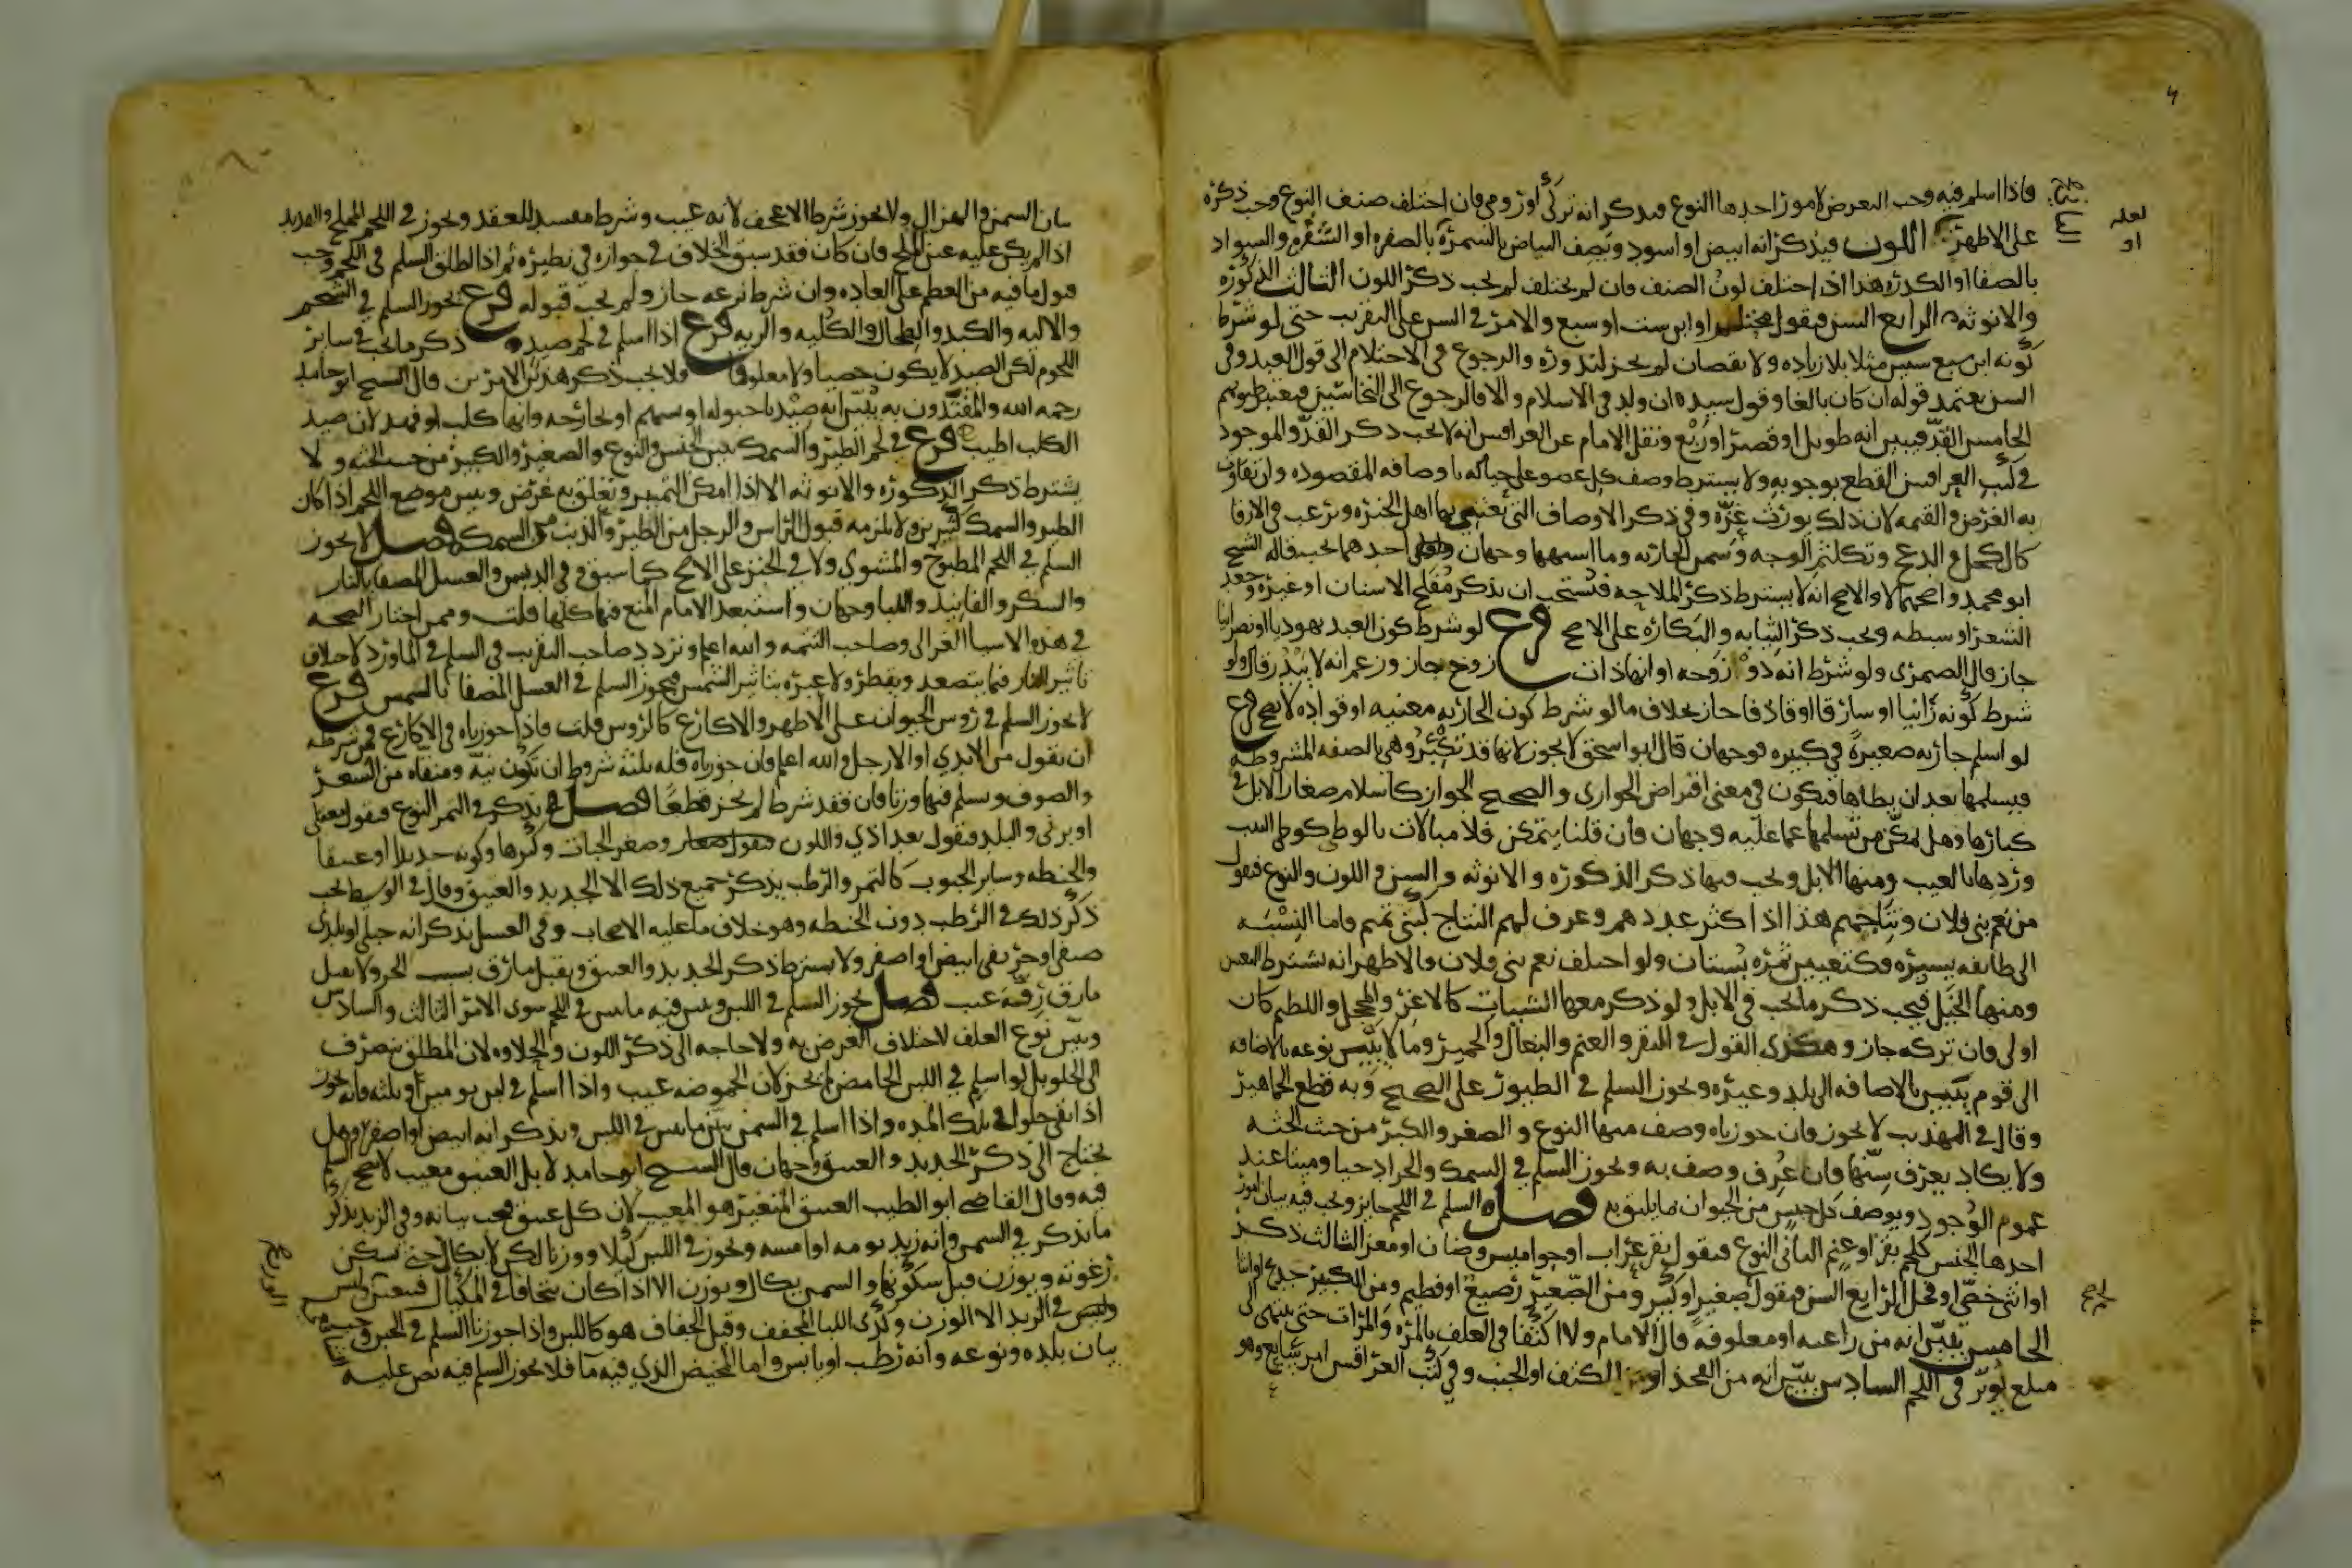 فاذا اسلم فيه وجب التعرض لامور احدها النوع فيذكر انه تركي او رومي فان اختلف صنف النوع وجب ذكره
على الاظهر اللون فيذكر انه ابيض او اسود ويصف البياض بالسمرة بالصفرة او الشقرة والسواد
بالصفا او الكدرة هذا اذا اختلف لون الصنف فان لم يختلف لم يجب ذكر اللون الثالث الذكورة
والانوثه الرابع السن فيقول محتلم او ابن ست او سبع والامر في السن على التقريب حتى لو شرط
كونه ابن سبع سنين مثلا بلا زياده ولا نقصان لم يجز لندوره والرجوع في الاحتلام الى قول العبد وفي
السن يعتمد قوله ان كان بالغا وقول سيده ان ولد في الاسلام والا فالرجوع الى النخاسين فيعتبر ظنونهم
الخامس القد فيبين انه طويل او قصير او ربع ونقل الامام عن العراقيين انه لا يجب ذكر القد والموجود
في كتب العراقيين القطع بوجوبه ولا يشترط وصف كل عضو على حياله باوصافه المقصوده وان تفاوت
به الغرض والقيمه لان ذلك يورث عزه وفي ذكر الاوصاف التي يعتني بها اهل الخبرة ويرغب في الارقا
كالكحل والدعج وتكلثم الوجه وسمن الجاريه وما اشبهها وجهان احدهما يجب قاله الشيخ
ابو محمد واصحهما لا والاصح انه لا يشترط ذكر الملاحه فيستحب ان يذكر مفلج الاسنان او غيره وجعد
الشعر او سبطه ويجب ذكر الثيابه والبكاره على الاصح فرع لو شرط كون العبد يهوديا او نصرانيا
جاز قال الصمري ولو شرط انه ذو زوجه او انها ذات زوج جاز وزعم انه لا يندر قال ولو
شرط كونه زانيا او سارقا او قاذفا جاز بخلاف ما لو شرط كون الجاريه مغنيه او قواده لا يصح فرع
لو اسلم جاريه صغيرة في كبيره فوجهان قال ابو اسحق لا يجوز لانها قد تكبر وهي بالصفه المشروطه
فيسلمها بعد ان يطاها فيكون في معنى اقتراض الجواري والصحيح الجواز كاسلام صغار الابل في
كبارها وهل يمكن من تسليمها عما عليه وجهان فان قلنا يتمكن فلا مبالات بالوطي كوطي الثيب
وردها بالعيب ومنها الابل ويجب فيها ذكر الذكوره والانوثه والسن واللون والنوع فيقول
من نعم بني فلان ونتاجهم هذا اذا كثر عددهم وعرف لهم النتاج كبني تميم فاما النسبه
الى طايفه يسيره فكتعيين ثمره بستان ولو اختلف نعم بني فلان فالاظهر انه يشترط التعيين
ومنها الخيل فيجب ذكر ما يجب في الابل ولو ذكر معها الشيات كالاغر والمحجل واللطيم كان
اولى فان تركه جاز وهكذى القول في البقر والغنم والبغال والحمير وما لا يتبين نوعه بالاضافه
الى قوم يتبين بالاضافه الى بلد وغيره ويجوز السلم في الطيور على الصحيح وبه قطع الجماهير
وقال في المهذب لا يجوز فان جوزناه وصف منها النوع والصغر والكبر من حيث الجثه
ولا يكاد يعرف سنها فان عرف وصف به ويجوز السلم في السمك والجراد حيا وميتا عند
عموم الوجود ويوصف كل جنس من الحيوان بما يليق به فصل السلم في اللحم جايز ويجب فيه بيان امور
احدها الجنس كلحم بقر او غنم الثاني النوع فيقول بقر عراب او جواميس وضان او معز الثالث ذكر
او انثى خصي او فحل الرابع السن فيقول صغير او كبير ومن الصغير رضيع او فطيم ومن الكبير جذع او ثني
الخامس يبين انه من راعيه او معلوفه قال الامام ولا اكتفا في العلف بالمره والمرات حتى ينتهي الى
مبلغ يؤثر في اللحم السادس يبين انه من الفخذ او الكتف او الجنب وفي كتب العراقيين امر سابع وهو
لعله
او
بيان السمن والهزال ولا يجوز شرط الاعجف لانه عيب وشرطه مفسد للعقد ويجوز في اللحم المملح والقديد
اذا لم يكن عليه عين الملح فان كان فقد سبق الخلاف في جوازه في نظيره ثم اذا اطلق السلم في اللحم وجب
قبول ما فيه من العظم على العاده وان شرط نزعه جاز ولم يجب قبوله فرع يجوز السلم في الشحم
والاليه والكبد والطحال والكليه والريه فرع اذا اسلم في لحم صيد ذكر ما يجب في ساير
اللحوم لكن الصيد لا يكون خصيا ولا معلوفا فلا يجب ذكر هذين الامرين قال الشيخ ابو حامد
رحمه الله والمقتدون به يبين انه صيد باحبوله او سهم او بجارحه وانها كلب او فهد لان صيد
الكلب اطيب فرع في لحم الطير والسمك يبين الجنس والنوع والصغير والكبير من حيث الجثه ولا
يشترط ذكر الذكوره والانوثه الا اذا امكن التمييز وتعلق به غرض ويبين موضع اللحم اذا كان
الطير والسمك كبيرين ولا يلزمه قبول الراس والرجل من الطير والذنب من السمك فصل لا يجوز
السلم في اللحم المطبوخ والمشوي ولا في الخبز على الاصح كما سبق وفي الدبس والعسل المصفا بالنار
والسكر والفانيد واللبا وجهان واستبعد الامام المنع فيها كلها قلت وممن اختار الصحه
في هذه الاشيا الغزالي وصاحب التتمه والله اعلم وتردد صاحب التقريب في السلم في الماورد لاختلاف
تاثير النار فيما يتصعد ويقطر ولا عبره بتاثير الشمس فيجوز السلم في العسل المصفا بالشمس فرع
لا يجوز السلم في رؤس الحيوان على الاظهر والاكارع كالرؤس قلت فاذا جوزناه في الاكارع فمن شرطه
ان يقول من الايدي او الارجل والله اعلم فان جوزناه فله ثلثة شروط ان تكون نيه ومنقاه من الشعر
والصوف ويسلم فيها وزنا فان فقد شرط لم يجز قطعا فصل يذكر في التمر النوع فيقول معقلي
او برني والبلد فيقول بغداذي واللون وصغر الحبات وكبرها وكونه حديثا او عتيقا
والحنطه وساير الحبوب كالتمر والرطب يذكر جميع ذلك الا الجديد والعتيق وقال في الوسيط يجب
ذكر ذلك في الرطب دون الحنطه وهو خلاف ما عليه الاصحاب وفي العسل يذكر انه جبلي او بلدي
صيفي او خريفي ابيض او اصفر ولا يشترط ذكر الجديد والعتيق ويقبل ما رق بسبب الحر ولا يقبل
ما رق رقة عيب فصل يجوز السلم في اللبن ويبين فيه ما يبين في اللحم سوى الامر الثالث والسادس
ويبين نوع العلف لاختلاف الغرض به ولا حاجه الى ذكر اللون والحلاوه لان المطلق ينصرف
الى الحلو بل لو اسلم في اللبن الحامض لم يجز لان الحموضه عيب واذا اسلم في لبن يومين او ثلثه فانه يجوز
اذا بقي حلوا في تلك المده واذا اسلم في السمن يبين ما يبين في اللبن ويذكر انه ابيض او اصفر وهل
يحتاج الى ذكر الجديد والعتيق وجهان قال الشيخ ابو حامد لا بل العتيق معيب لا يصح السلم
فيه وقال القاضي ابو الطيب العتيق المتغير هو المعيب لان كل عتيق فيجب بيانه وفي الزبد يذكر
ما يذكر في السمن وانه زبد يومه او امسه ويجوز في اللبن كيلا ووزنا لكن لا يكال حتى تسكن
رغوته ويوزن قبل سكونها والسمن يكال ويوزن الا اذا كان يتجافا في المكيال فيتعين الوزن
وليس في الزبد الا الوزن وكذى اللبا المجفف وقبل الجفاف هو كاللبن واذا جوزنا السلم في الجبن وجب
بيان بلده ونوعه وانه رطب او يابس واما المخيض الذي فيه ما فلا يجوز السلم فيه نص عليه